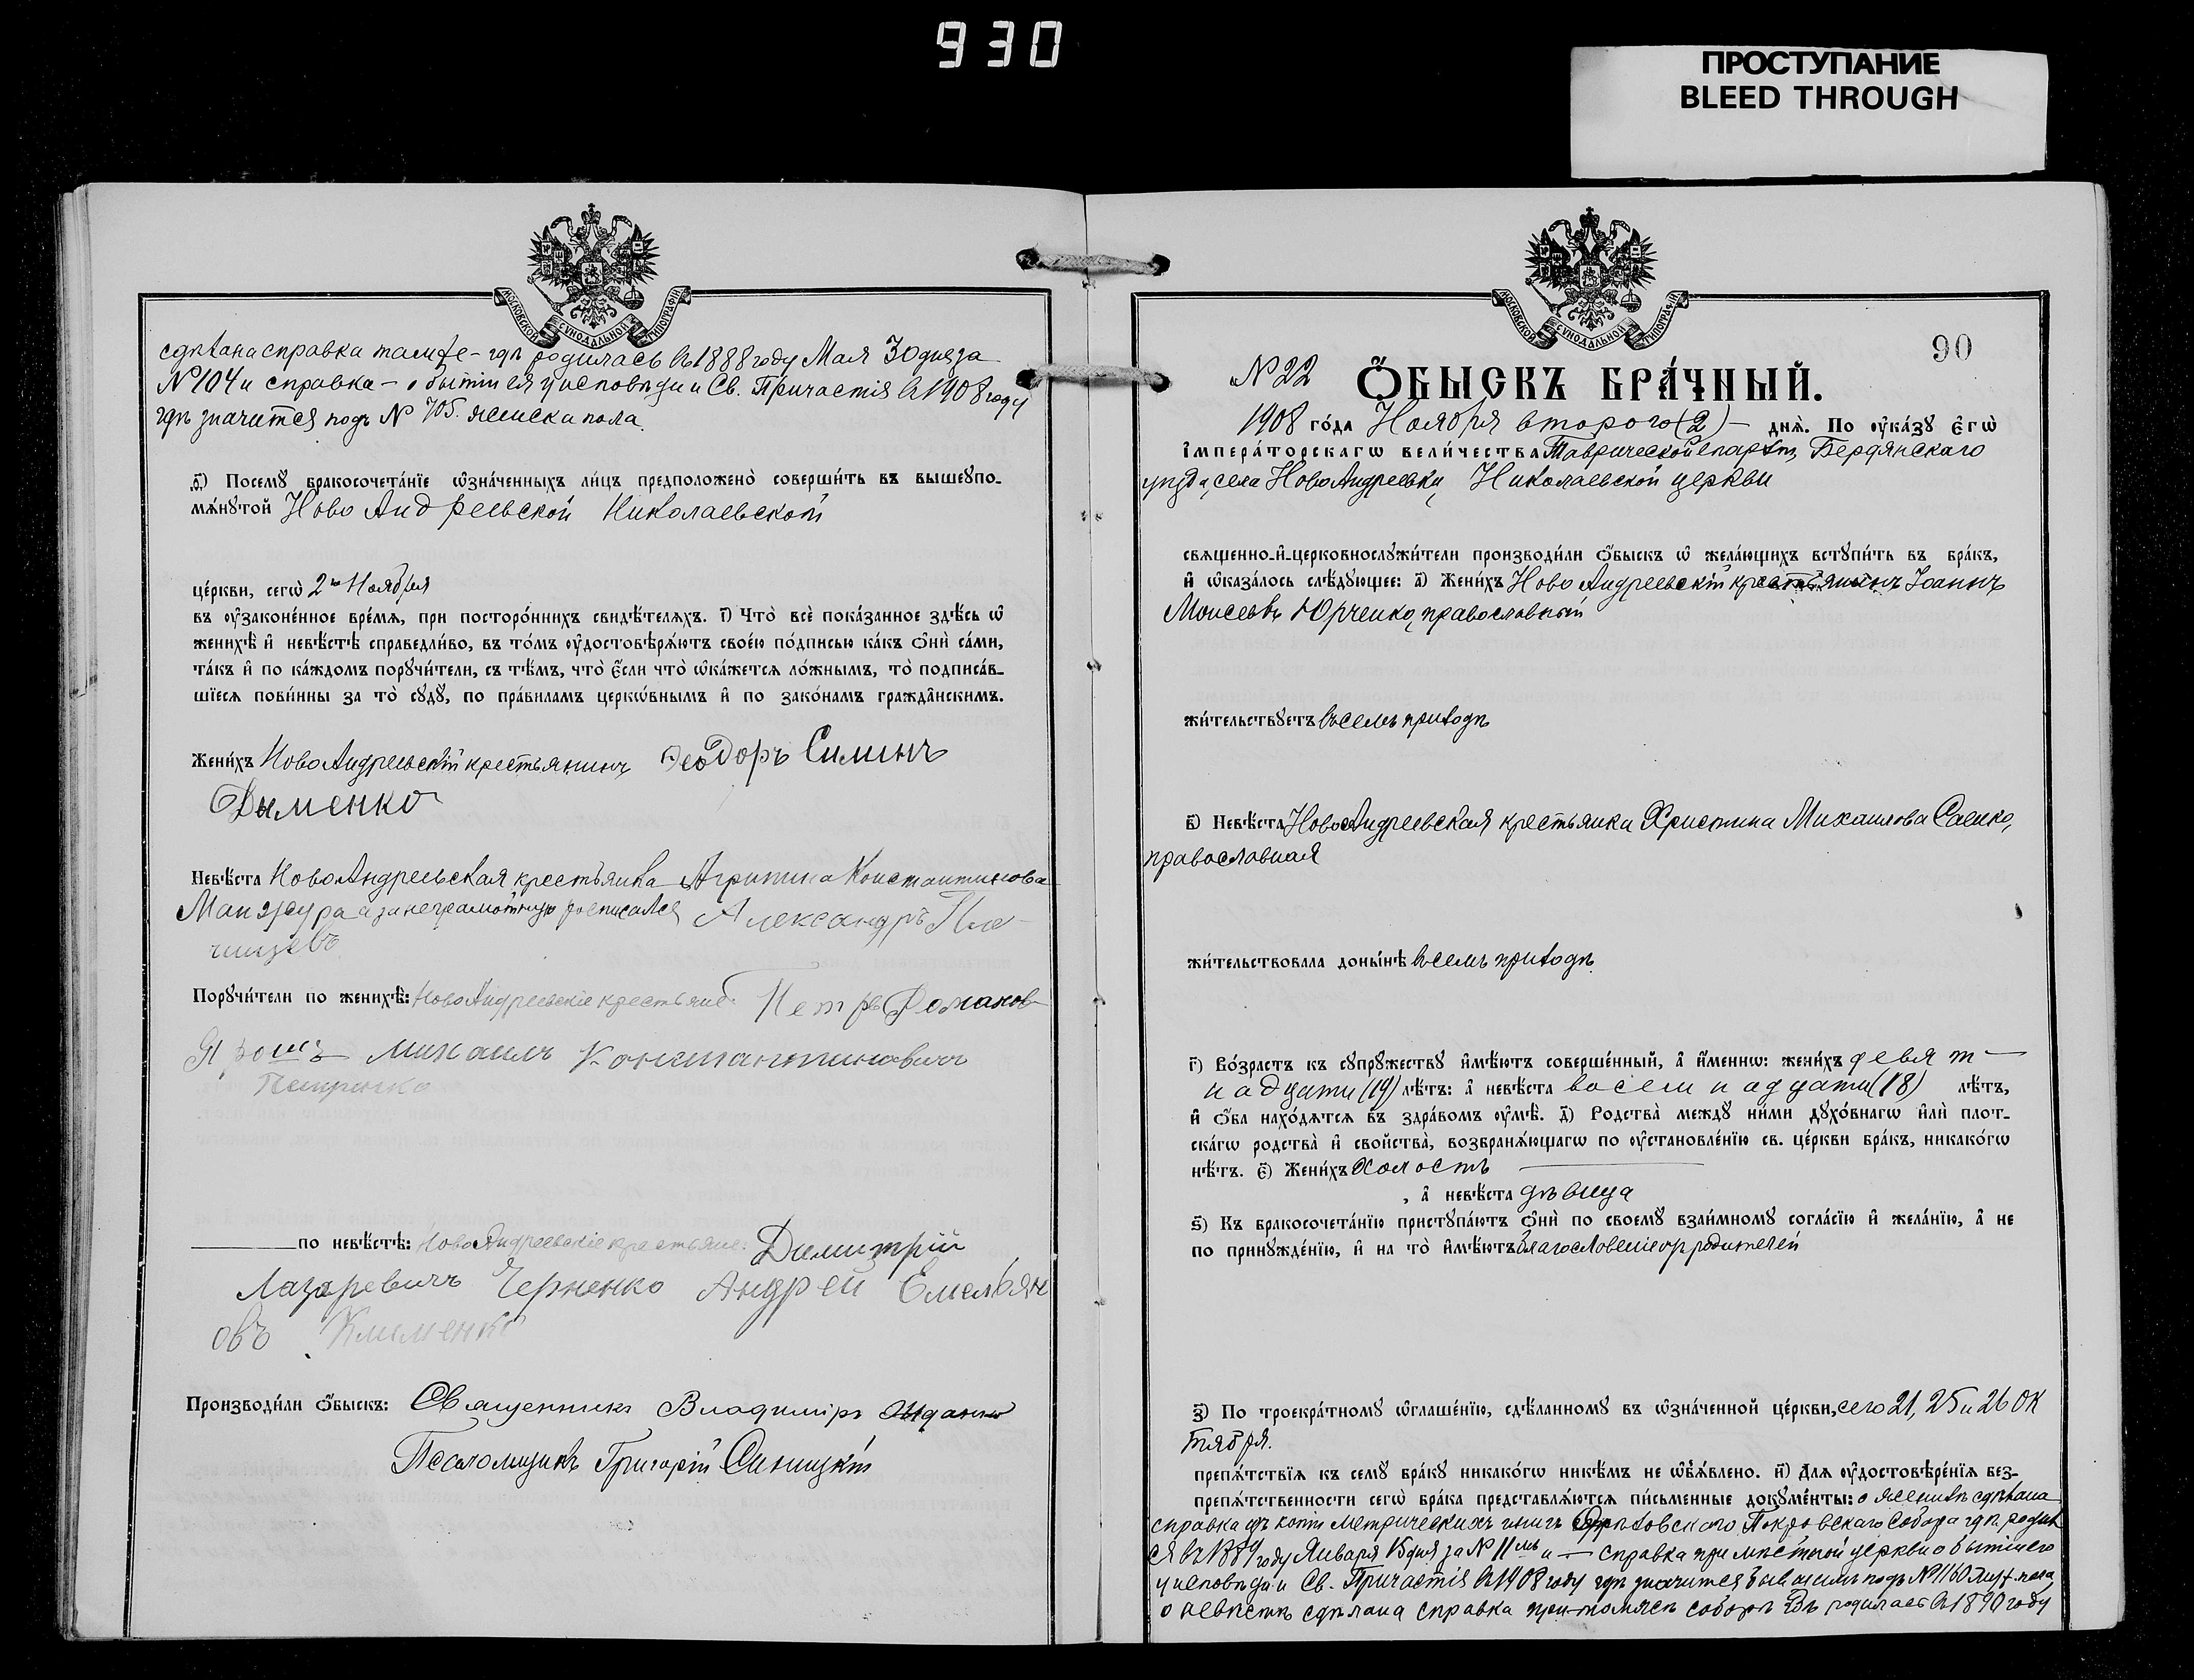 930
ПРОСТУПАНИЕ
BLEED THROUGH
МОСКОВСКОЙ СѴНОДАЛЬНОЙ ТИПОГРАФІИ
сдѣлана справка тамже – гдѣ родилась въ 1888 году Мая 30 дня за
№ 104 и справка – о бытіи ея у исповѣди и Св. Причастія въ 1908 году
гдѣ значится подъ № 705. женска пола.
д҃) Посемꙋ бракосочета́нїе ѡ҆зна́ченныхъ ли́цъ предположено̀ соверши́ть въ вышеꙋпо-
мѧ́нꙋтой Ново Андреевской Николаевской
це́ркви, сегѡ̀ 2го Ноября
въ ᲂу҆законе́нное вре́мѧ, при посторо́ннихъ свидѣ́телѧхъ. і҃) Что̀ всѐ пока́занное здѣ́сь ѡ҆
женихѣ̀ и҆ невѣ́стѣ справедли́во, въ то́мъ ᲂу҆достовѣрѧ́ютъ свое́ю по́дписью ка́къ ѻ҆нѝ са́ми,
та́къ и҆ по ка́ждомъ порꙋчи́тели, съ тѣ́мъ, что̀ є҆́сли что̀ ѡ҆ка́жетсѧ ло́жнымъ, то̀ подписа́в-
шїесѧ пови́нны за то̀ сꙋдꙋ̀, по пра́виламъ церко́внымъ и҆ по зако́намъ гражда́нскимъ.
Жени́хъ Ново Андреевскій крестьянинъ Ѳеодоръ Симинъ
Дыменко
Невѣ́ста Ново Андреевская крестьянка Агрипина Константинова
Манжура а за неграмотную росписался Александръ
Порꙋчи́тели по женихѣ̀: Ново Андреевскіе крестьяне: Петръ Романов
Ярошъ Михаилъ Константиновичъ
Петренко
по невѣ́стѣ: Ново Андреевскіе крестьяне: Димитрій
Лазаревичъ Черненко Андрей Емельян
овъ Клименко
Производи́ли ѻ҆́быскъ: Священникъ Владиміръ
Псаломщикъ Григорій Синицкій
МОСКОВСКОЙ СѴНОДАЛЬНОЙ ТИПОГРАФІИ
90
№ 22 Ѻ҆́БЫСКЪ БРА́ЧНЫЙ.
1908 го́да Ноября второго (2) – днѧ̀. По ᲂу҆ка́зꙋ Є҆гѡ̀
і҆мпера́торскагѡ вели́чества Таврической епархіи, Бердянскаго
уѣзда, села Ново Андреевки, Николаевской церкви
свѧщенно-и҆-церковнослꙋжи́тели производи́ли ѻ҆́быскъ ѡ҆ жела́ющихъ встꙋпи́ть въ бра́къ,
и҆ ѡ҆каза́лось слѣ́дꙋющее: а҃) Жени́хъ Ново Андреевскій крестьянинъ Іоаннъ
Моисеевъ Юрченко, православный
жи́тельствꙋетъ въ семъ приходѣ
в҃) Невѣ́ста Ново Андреевская крестьянка Христина Михаилова Саенко,
православная
жи́тельствовала доны́нѣ въ семъ приходѣ.
г҃) Во́зрастъ къ сꙋпрꙋ́жествꙋ и҆мѣ́ютъ соверше́нный, а҆ и҆́меннѡ: жени́хъ девят–
надцати (19) лѣ́тъ: а҆ невѣ́ста восемнадцати (18) лѣ́тъ,
и҆ ѻ҆́ба нахо́дѧтсѧ въ здра́вомъ ᲂу҆мѣ̀. д҃) Родства̀ междꙋ̀ ни́ми дꙋхо́внагѡ и҆лѝ плот-
ска́гѡ родства̀ и҆ свойства̀, возбранѧ́ющагѡ по ᲂу҆становле́нїю св. це́ркви бра́къ, никако́гѡ
нѣ́тъ. є҃) Жени́хъ холостъ
, а҆ невѣ́ста дѣвица
ѕ҃) Къ бракосочета́нїю пристꙋпа́ютъ ѻ҆нѝ по своемꙋ̀ взаи́мномꙋ согла́сїю и҆ жела́нїю, а҆ не
по принꙋжде́нїю, и҆ на то̀ и҆мѣ́ютъ благословеніе родителей
з҃) По троекра́тномꙋ ѡ҆глаше́нїю, сдѣ́ланномꙋ въ ѡ҆зна́ченной це́ркви, сего 21, 25 и 26 Ок
тября.
препѧ́тствїѧ къ семꙋ̀ бра́кꙋ никако́гѡ никѣ́мъ не ѡ҆б̾ѧ́влено. и҃) Длѧ ᲂу҆достовѣре́нїѧ без-
препѧ́тственности сегѡ̀ бра́ка представлѧ́ютсѧ пи́сьменные докꙋме́нты: о женихѣ сдѣлана
справка изъ копіи метрическихъ книгъ Орѣховскаго Покровскаго Собора гдѣ родил
ся въ 1889 году Января 15 дня за № 11мъ и – справка при мѣстной церкви о бытіи его
у исповѣди и Св. Причастія въ 1908 году гдѣ значится бывшимъ подъ № 1160 муж. пола,
о невѣстѣ сдѣлана справка при томже соборѣ гдѣ родилась въ 1890 году